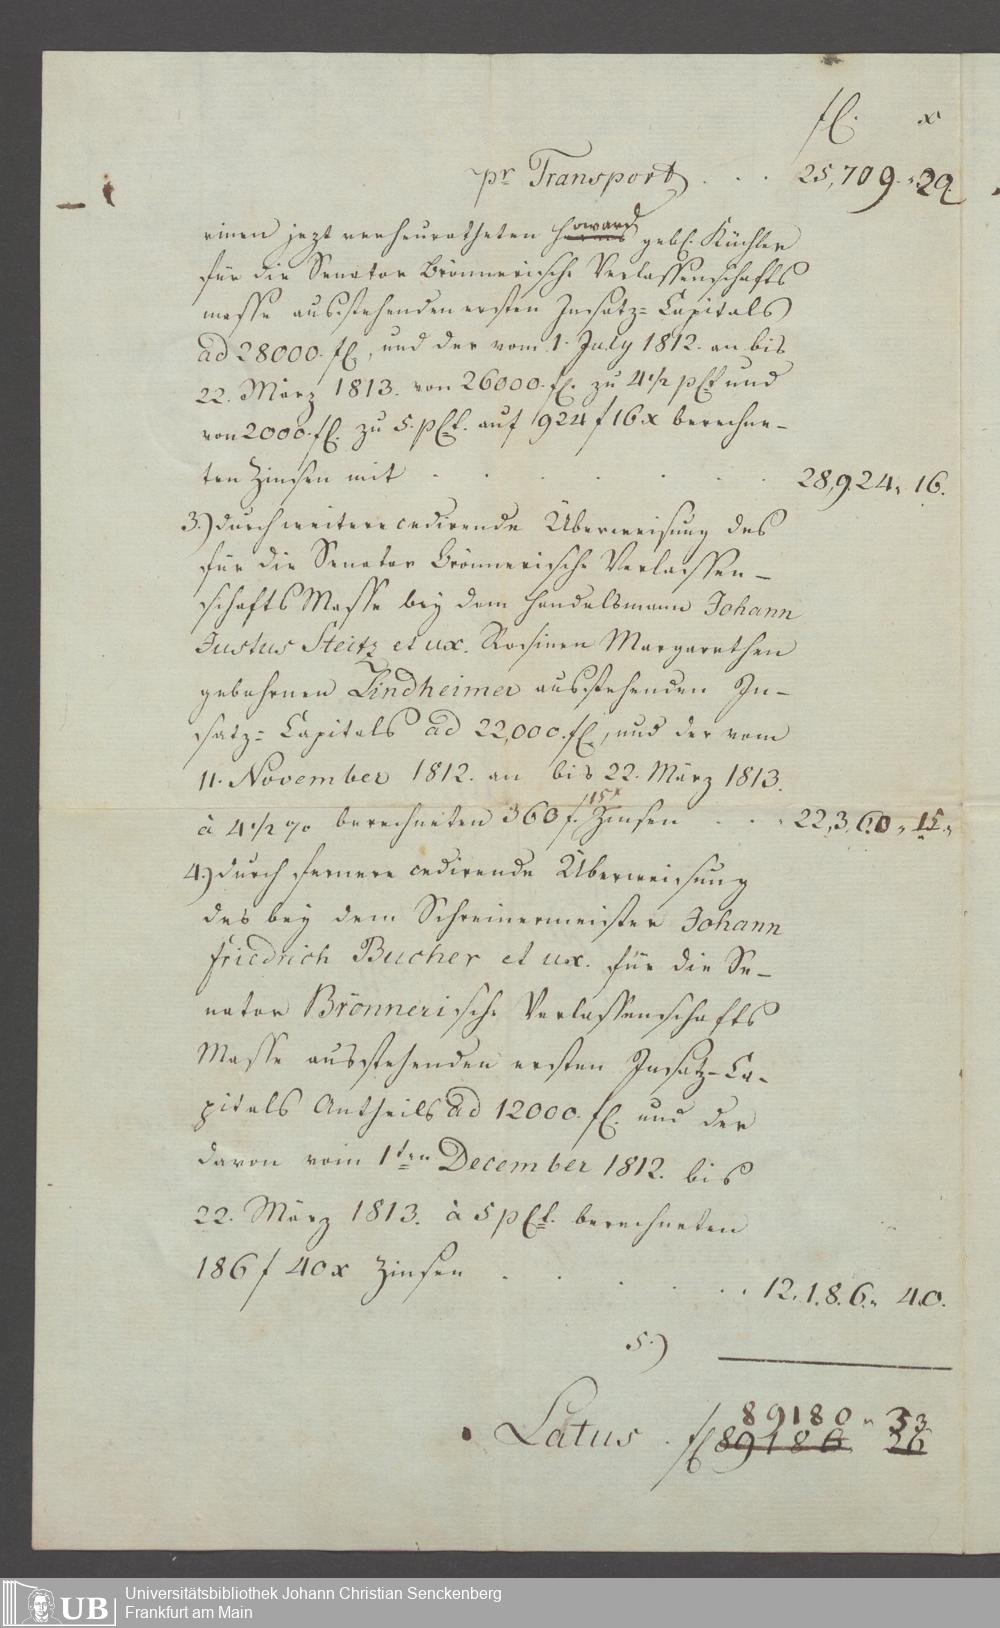 fl. x
pr Transport . . . 25,709 „ 29.
rinen jezt verheuratheten Howard gebl. Küchler
für die Senator Brönnerische Verlassenschafts
masse ausstehenden ersten Insatz=Capitals
ad 28000. fl., und der vom 1. July 1812. an bis
22. März 1813. von 26000. fl. zu 4 1/2 pCt und
von 2000. fl. zu 5. pCt. auf 924 f 16 x berechne-
ten Zinsen mit . . . . . . 28,924 „ 16.
3.) durch weitere cedirende Überweisung des
für die Senator Brönnerische Verlassen-
schafts Masse bey dem Handelsmann Johann
Justus Steitz et ux. Rosinen Margarethen
gebohrnen Lindheimer ausstehenden In-
satz=Capitals ad 22,000. fl., und der vom
11. November 1812. an bis 22. März 1813.
à 4 1/2 % berechneten 360 f. 15x Zinsen . . . 22,360 „ 15 „
4.) durch fernere cedirende Überweisung
des bey dem Schreinermeister Johann
Friedrich Bucher et ux. für die Se-
nator Brönnerische Verlassenschafts
Masse ausstehenden ersten Insatz-Ca-
pitals Antheils ad 12000. fl. und der
davon vom 1ten December 1812. bis
22. März 1813. à 5 pCt. berechneten
186 f 40 x Zinsen . . . . . . 12,186 „ 40.
5.)
89180 „ 33
Latus . fl 89186 26
UB Universitätsbibliothek Johann Christian Senckenberg
Frankfurt am Main